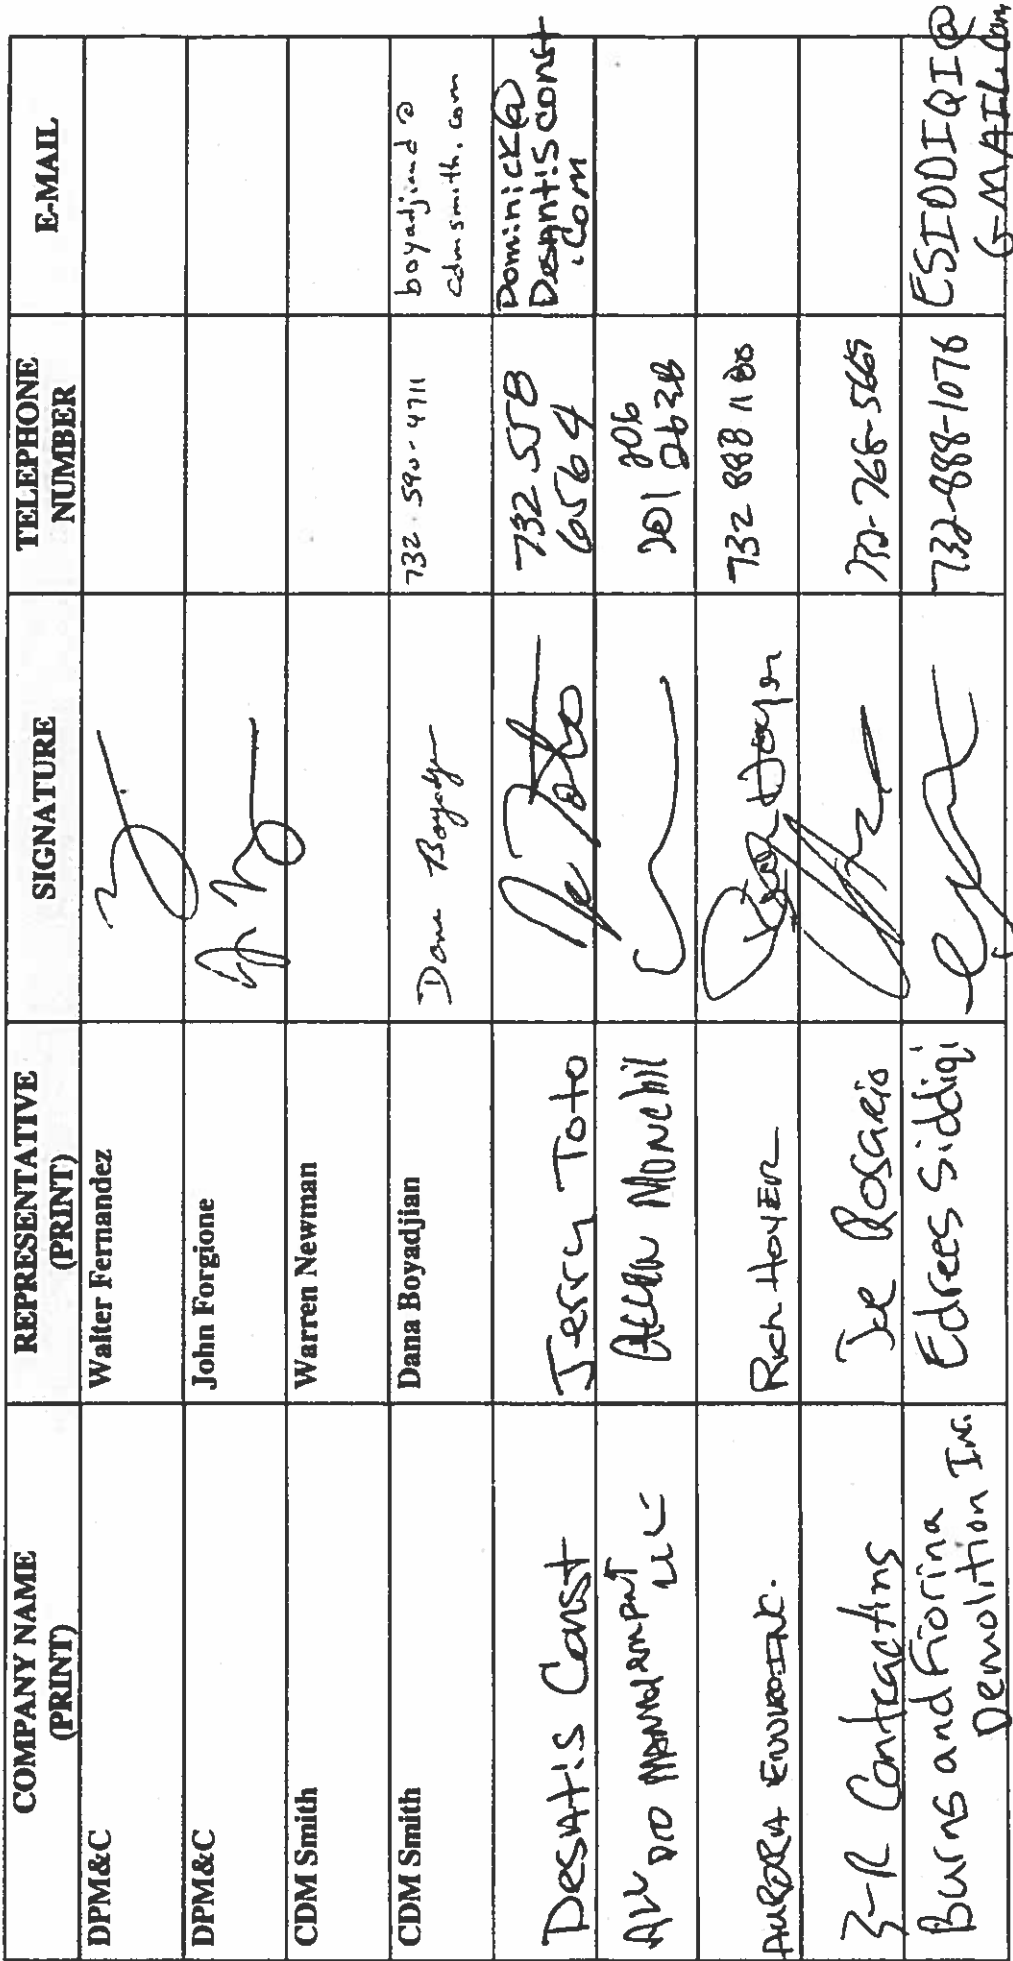 COMPANY NAME
(PRINT)
REPRESENTATIVE
(PRINT)
SIGNATURE
TELEPHONE
NUMBER
E-MAIL
DPM&C
Walter Fernandez
DPM&C
John Forgione
CDM Smith
Warren Newman
CDM Smith
Dana Boyadjian
Dana Boyadjian
732-590-4711
boyadjiand@
cdmsmith.com
Desantis Const
Jerry Toto
732 558
6564
Dominick@
Desantisconst
.com
ALL PRO Management
LLC
206
201 2628
AURORA
Rich Hoyer
Rich Hoyer
732 888 1180
3-R Contracting
Joe Rosario
732-766-5665
Burns and Fiorina
Demolition Inc.
Edrees Siddiqi
732-888-1076
ESIDDIQI@
GMAIL.com